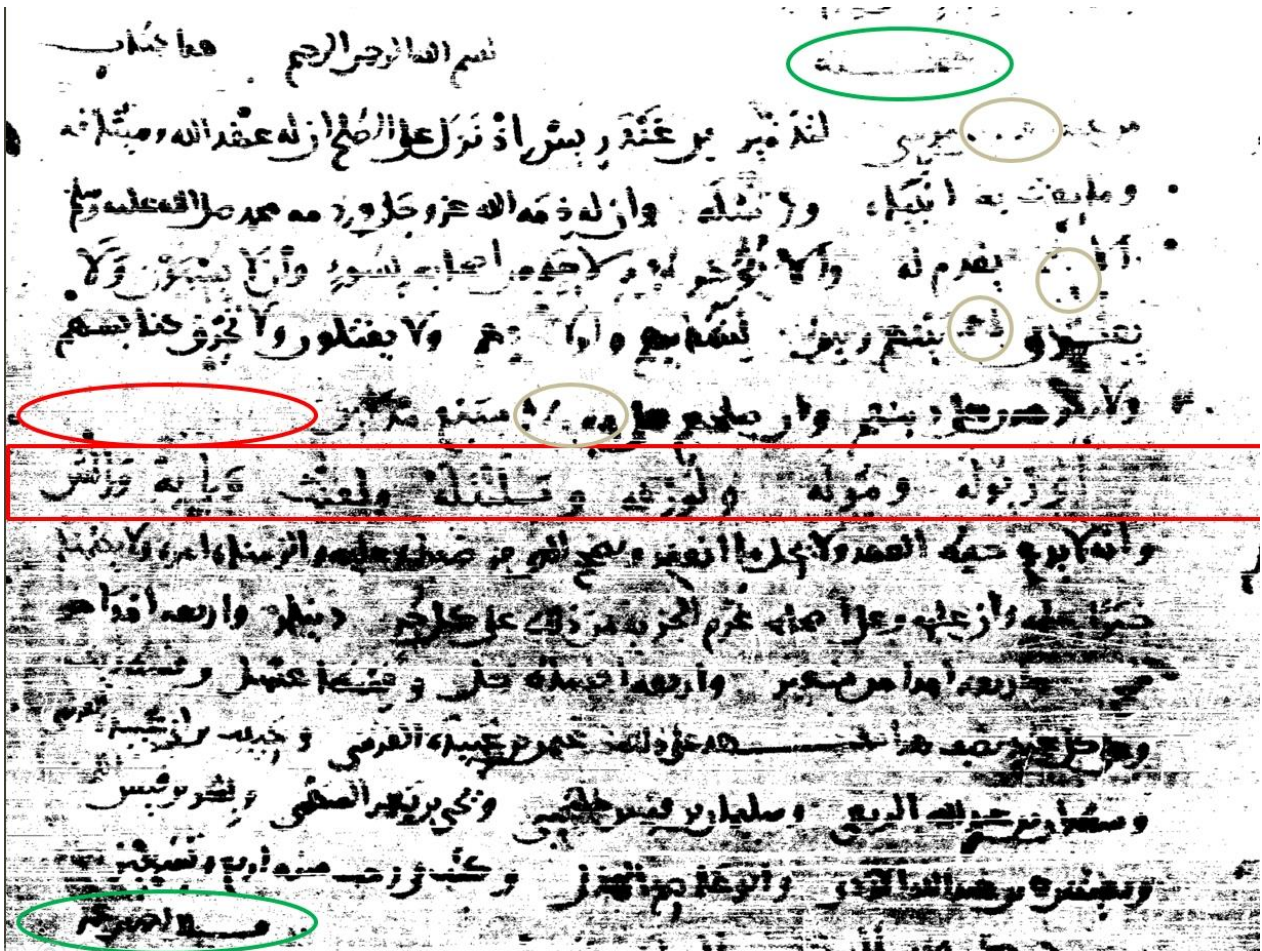 بسم الله الرحمن الرحيم هذا كتاب
من عبد موسى لتدمير بن غندريس اذ نزل على الصلح ان له عهد الله وميثاقه
وما بعث به انبياءه ورسله وان له ذمة الله عز وجل وذمة محمد صلى الله عليه وسلم
الا يقدم له والا يؤخر لاحد من اصحابه بسوء وأن لا يسبون ولا
يفرق بينهم وبين نسائهم واولادهم ولا يقتلون ولا تحرق كنائسهم
ولا يكرهون على دينهم وان صلحهم على سبع مدائن
اوريولة ومولة ولورقة وبلنتلة ولقنت واية والش
وانه لا يدع حفظ العهد ولا يحل ما انعقد ويصحح الذي فرضناه عليه والزمناه امره ولا يكتمنا
خبرا علمه وان عليه وعلى اصحابه غرم الجزية من ذلك على كل حر دينار واربعة امداد
من واربعة امداد من شعير واربعة اقساط خل وقسطا عسل وقسط زيت
وعلى كل عبد نصف هذا شهد على ذلك عثمان بن عبيدة القرشي وحبيب بن ابي عبيدة القرشي
وسعدان بن عبد الله الربعي وسليمان بن قيس التجيبي ويحيى بن يعمر السهمي وبشر بن قيس
ويعيش بن عبد الله الازدي وابو عاصم الهذلي وكتب في رجب سنة اربع وتسعين